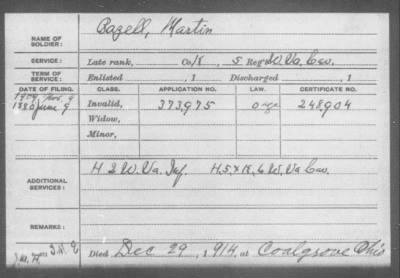 NAME OF SOLDIER: Bazell, Martin
SERVICE: Late rank, Co K, 5 Reg't W. Va. Cav.
TERM OF SERVICE: Enlisted , 1 Discharged , 1
DATE OF FILING. CLASS. APPLICATION NO. LAW. CERTIFICATE NO.
Nov. 9
1880 June 9 Invalid, 373,975 248,904
Widow,
Minor,
ADDITIONAL SERVICES: H 2 W. Va. Inf. H, 5, & K, 6 W. Va Cav.
REMARKS:
Died Dec 29, 1914, at Coalgrove Ohio